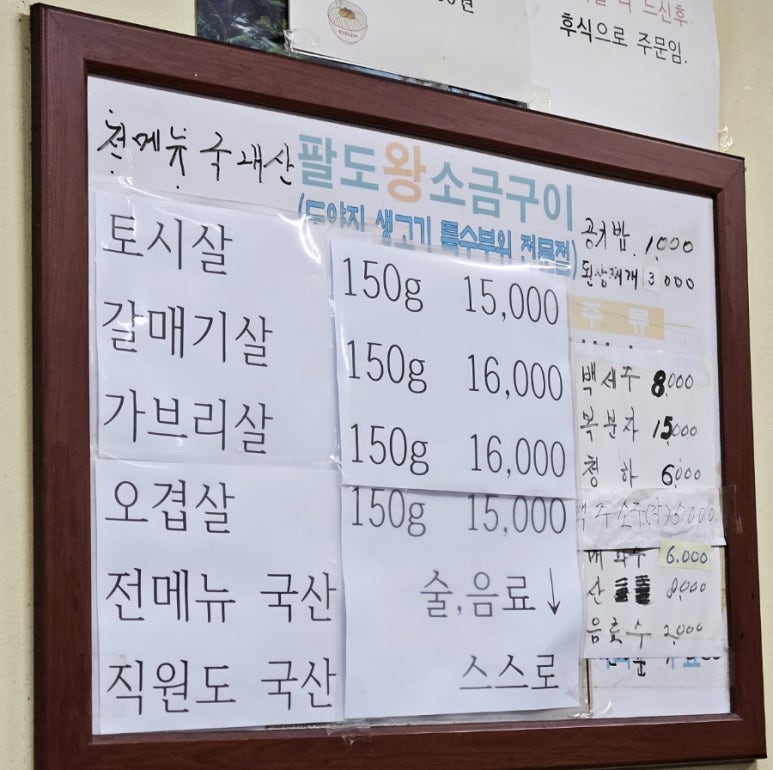 후식으로 주문임.
전메뉴 국내산
팔도왕소금구이
생고기 특수부위 전문점)
토시살 150g 15,000
갈매기살 150g 16,000
가브리살 150g 16,000
오겹살 150g 15,000
전메뉴 국산 술,음료↓
직원도 국산 스스로
공기밥 1,000
된장찌개 3000
주류
백세주 8,000
복분자 15,000
청하 6,000
6.000
산 8,000
음료수 2,000